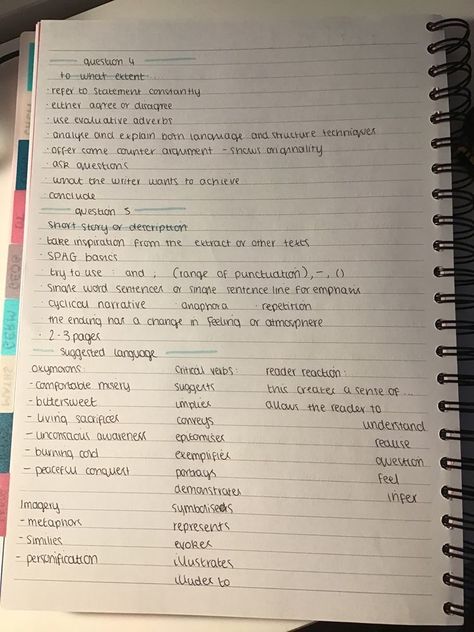 question 4
to what extent...
· refer to statement constantly
· either agree or disagree
· use evaluative adverbs
· analyse and explain both language and structure techniques
· offer some counter argument - shows originality
· ask questions
· what the writer wants to achieve
· conclude
question 5
short story or description
· take inspiration from the extract or other texts
· SPAG basics
· try to use : and ; (range of punctuation), -, ()
· single word sentences or single sentence line for emphasis
· cyclical narrative · anaphora · repetition
· the ending has a change in feeling or atmosphere
· 2-3 pages
suggested language
oxymorons: critical verbs: reader reaction:
- comfortable misery suggests this creates a sense of ...
- bittersweet implies allows the reader to
- living sacrifices conveys understand
- unconscious awareness epitomises realise
- burning cold exemplifies question
- peaceful conquest portrays feel
demonstrates infer
Imagery symbolises
- metaphors represents
- similies evokes
- personification illustrates
illudes to